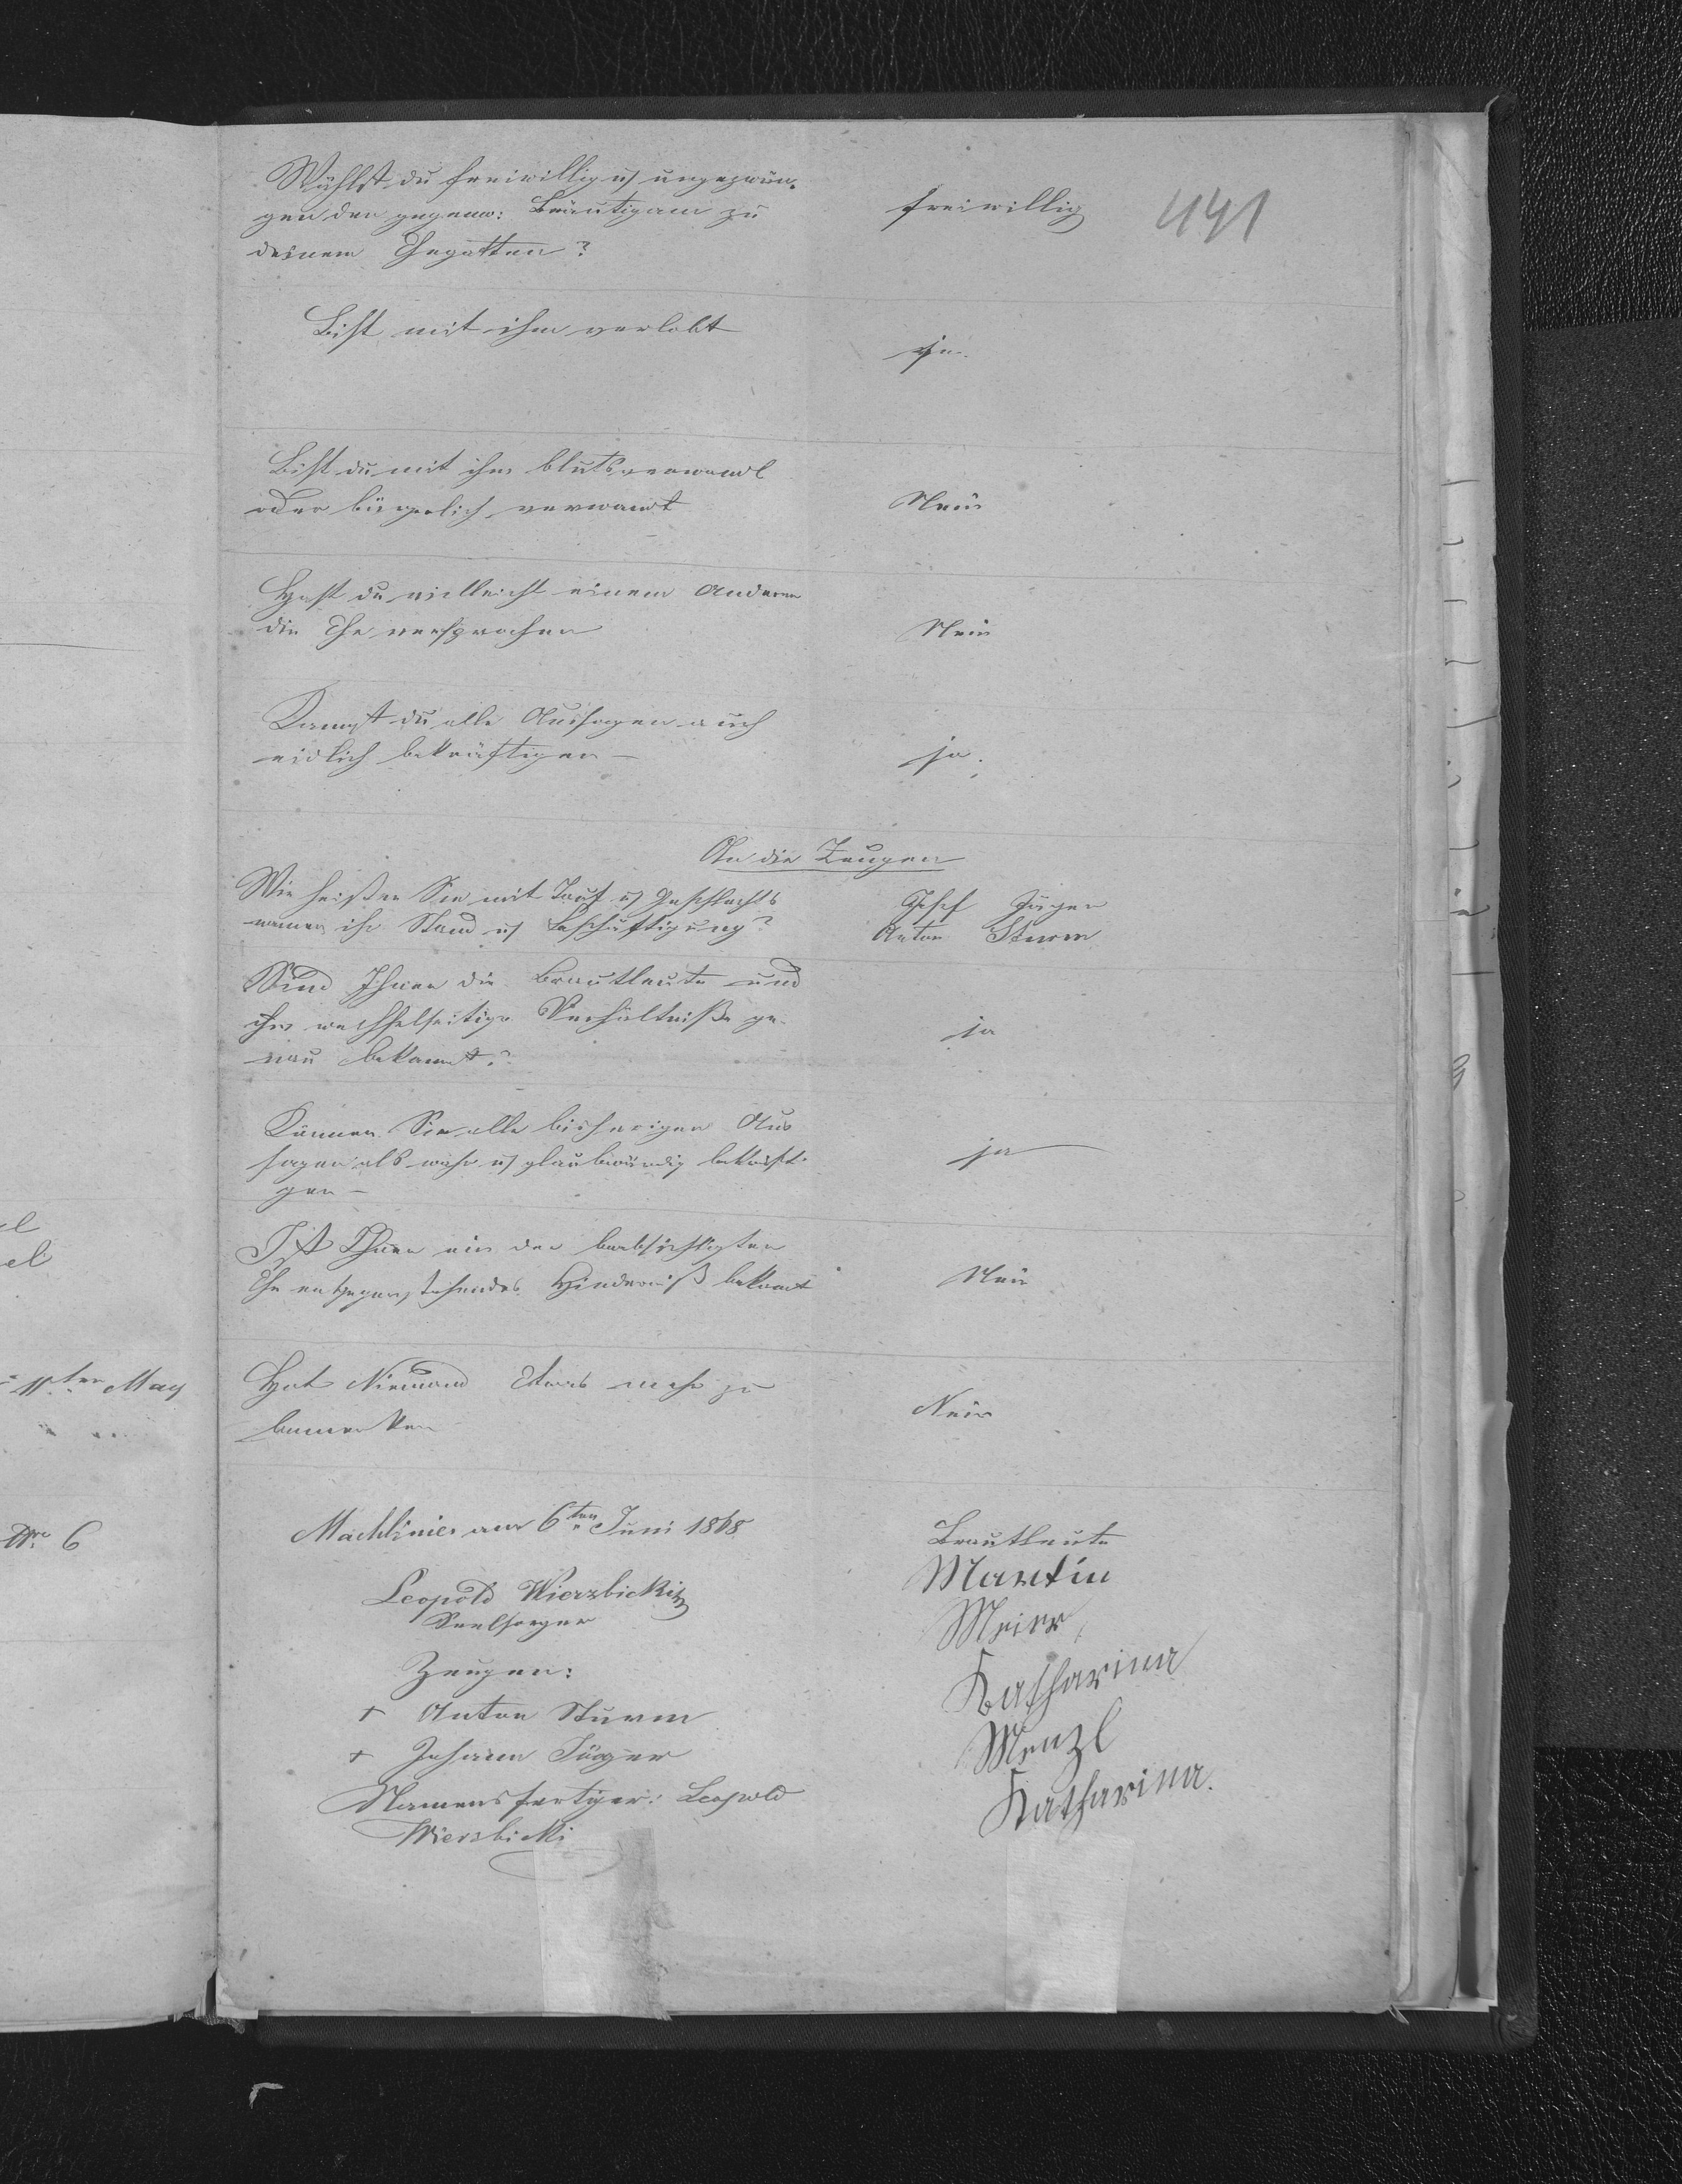 Wählst du freiwillig u ungezwun-
gen den gegenw: Bräutigam zu
deinem Ehegatten?
freiwillig
441
Bist mit ihm verlobt
ja.
Bist du mit ihm blutsverwandt
oder bürgerlich verwandt
Nein
Hast du vielleicht einem Anderen
die Ehe versprochen
Nein
Kannst du alle Aussagen auch
eidlich bekräftigen –
ja.
An die Zeugen
Wie heißen Sie mit Tauf u Geschlechts
namen ihr Stand u Beschäftigung?
Josef Jäger
Anton Sturm
Sind Ihnen die Brautleute und
ihre wechselseitige Verhältniße ge-
nau bekannt?
ja
Können Sie alle bisherigen Aus
sagen als wahr u glaubwürdig bekräfti-
gen –
ja
Ist Ihnen ein der beabsichtigten
Ehe entgegenstehendes Hinderniß bekannt
Nein
Hat Niemand Etwas mehr zu
bemerken
Nein
Machliniec am 6ten Juni 1868
Leopold Wierzbicki
Seelsorger
Zeugen:
+ Anton Sturm
+ Johann Jäger
Namensfertiger: Leopold
Wierzbicki
Brautleute
Martin
Meier
Katharina
Menzl
Katharina.
el
11ten May
Nro 6